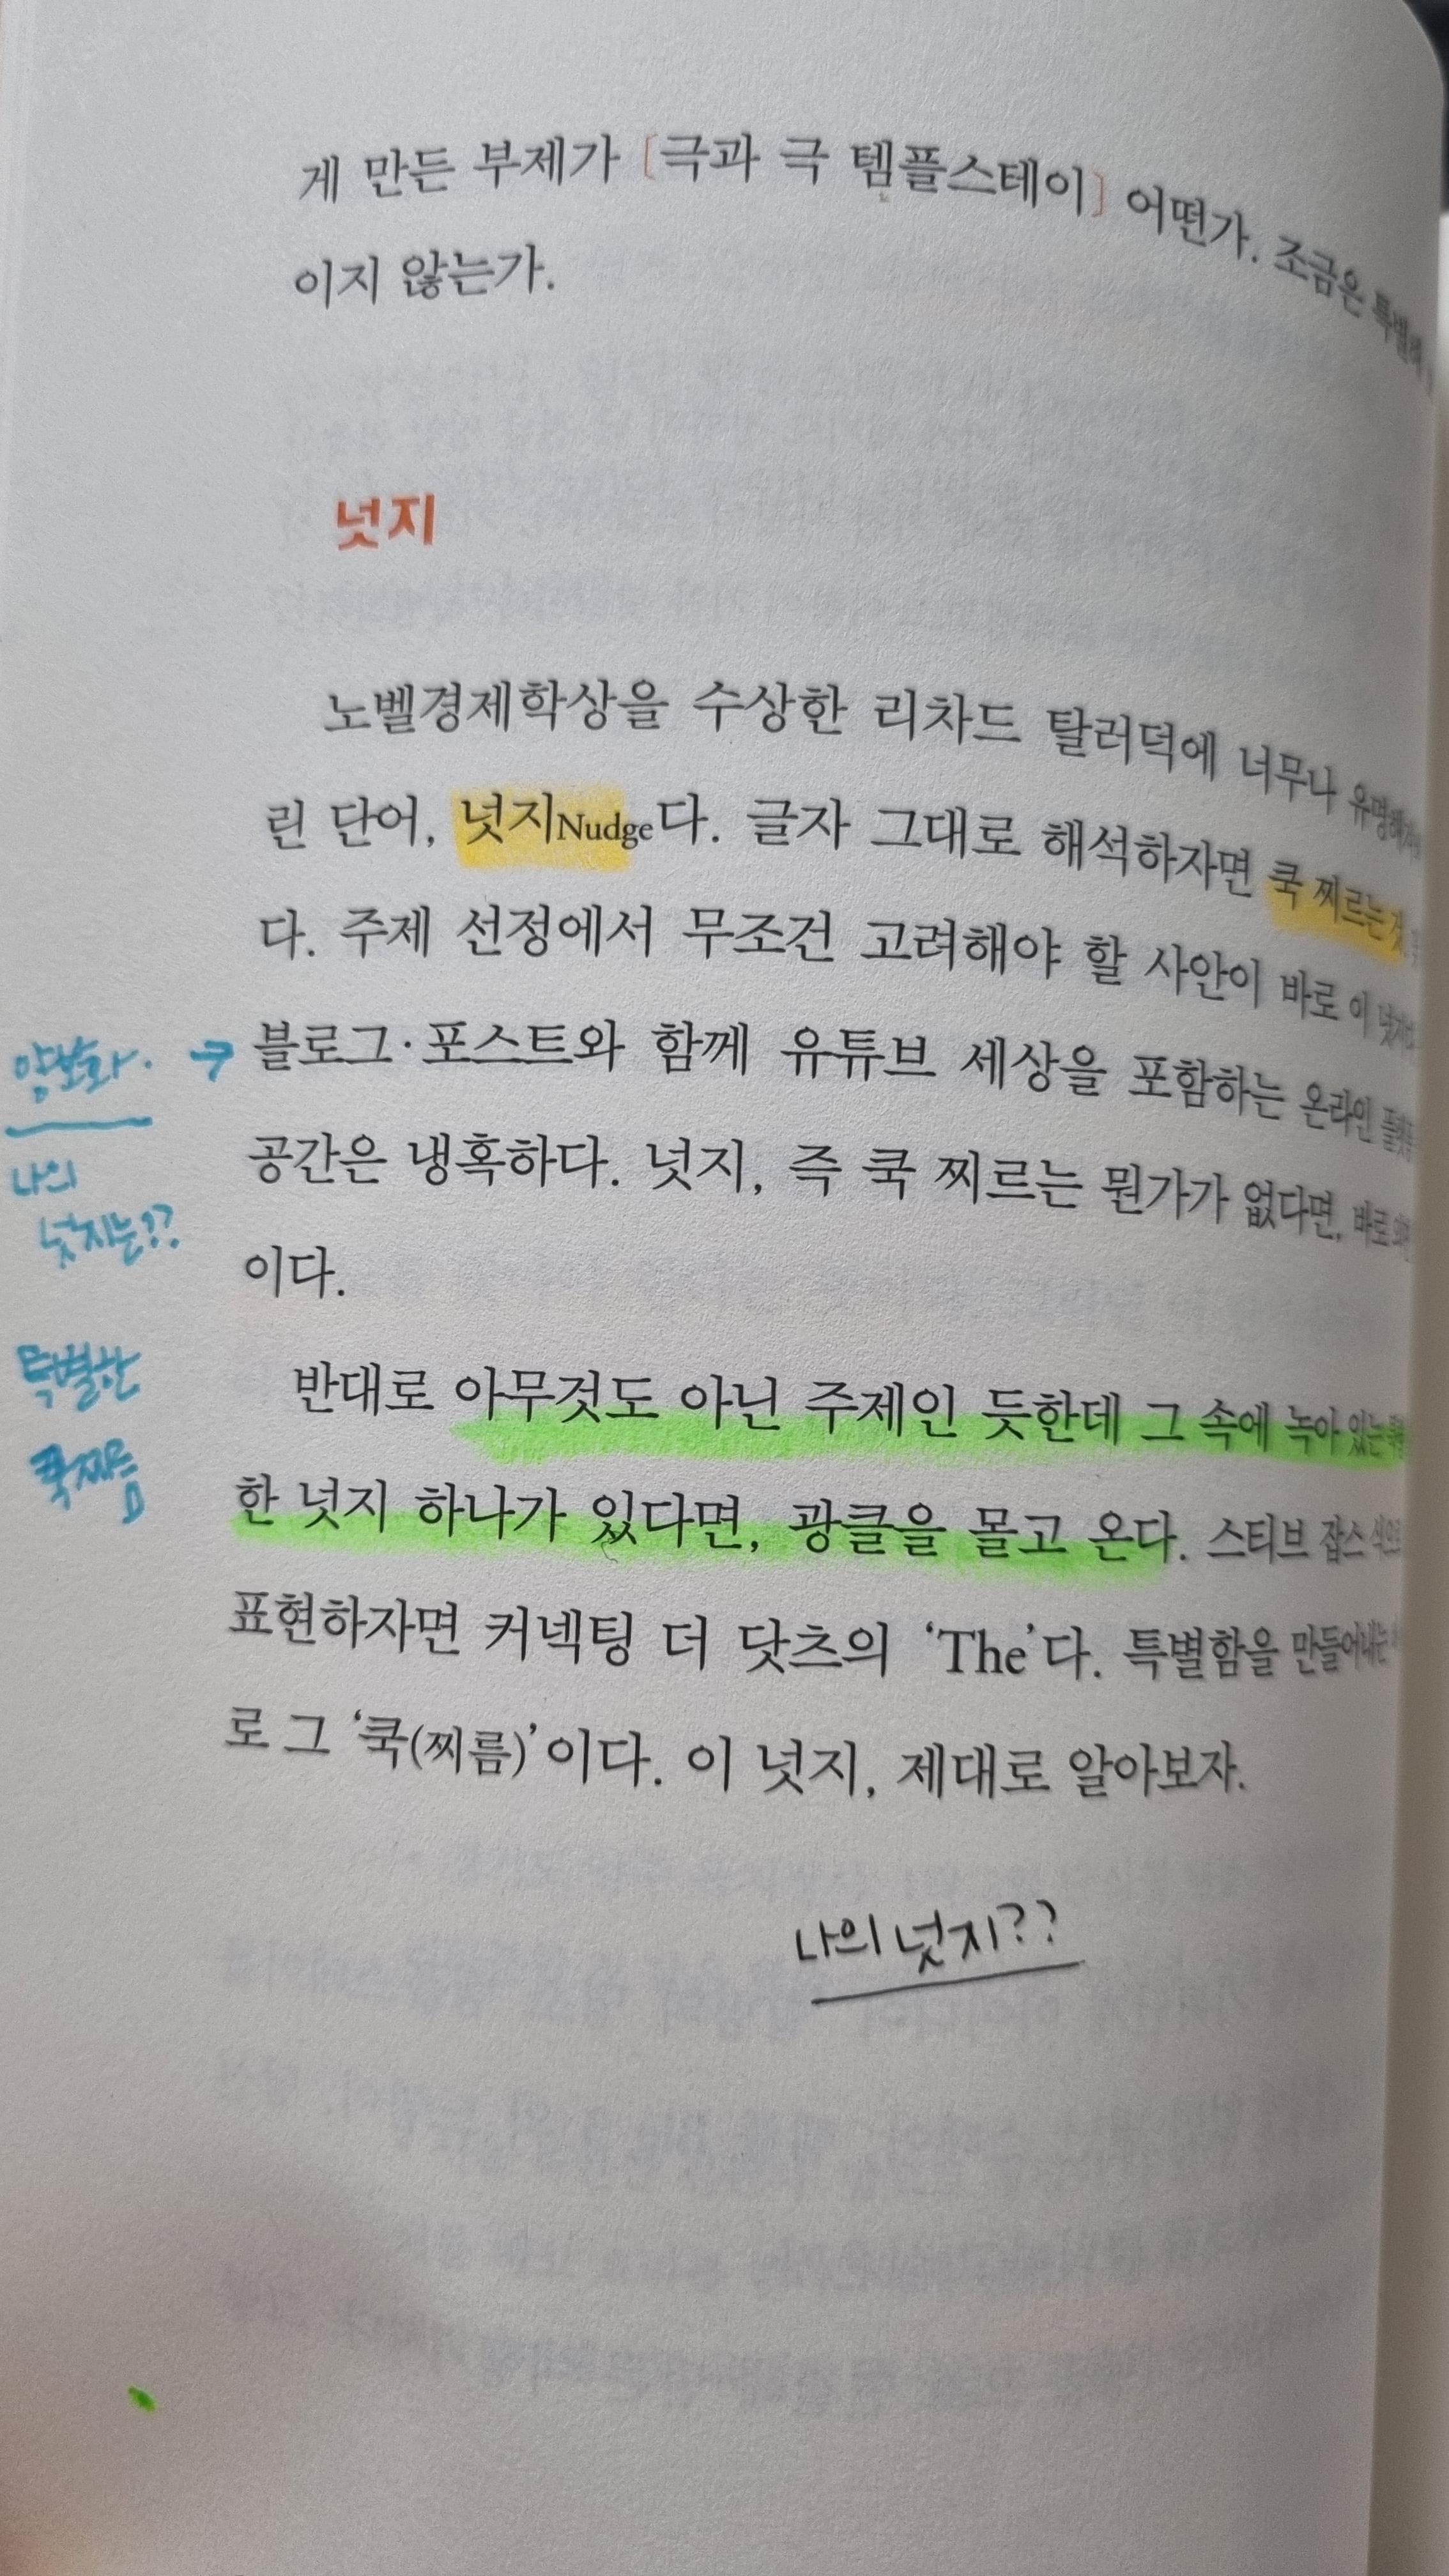 게 만든 부제가 [극과 극 템플스테이] 어떤가. 조금은 특별해
이지 않는가.
넛지
노벨경제학상을 수상한 리차드 탈러덕에 너무나 유명해져버
린 단어, 넛지Nudge다. 글자 그대로 해석하자면 쿡 찌르는 것.
다. 주제 선정에서 무조건 고려해야 할 사안이 바로 이 넛지
블로그·포스트와 함께 유튜브 세상을 포함하는 온라인 플랫폼
공간은 냉혹하다. 넛지, 즉 쿡 찌르는 뭔가가 없다면, 바로 외면
이다.
반대로 아무것도 아닌 주제인 듯한데 그 속에 녹아 있는 특별
한 넛지 하나가 있다면, 광클을 몰고 온다. 스티브 잡스 식으로
표현하자면 커넥팅 더 닷츠의 ‘The’다. 특별함을 만들어내는
로 그 ‘쿡(찌름)’이다. 이 넛지, 제대로 알아보자.
→
나의
넛지는??
특별한
쿡찌름
나의 넛지??